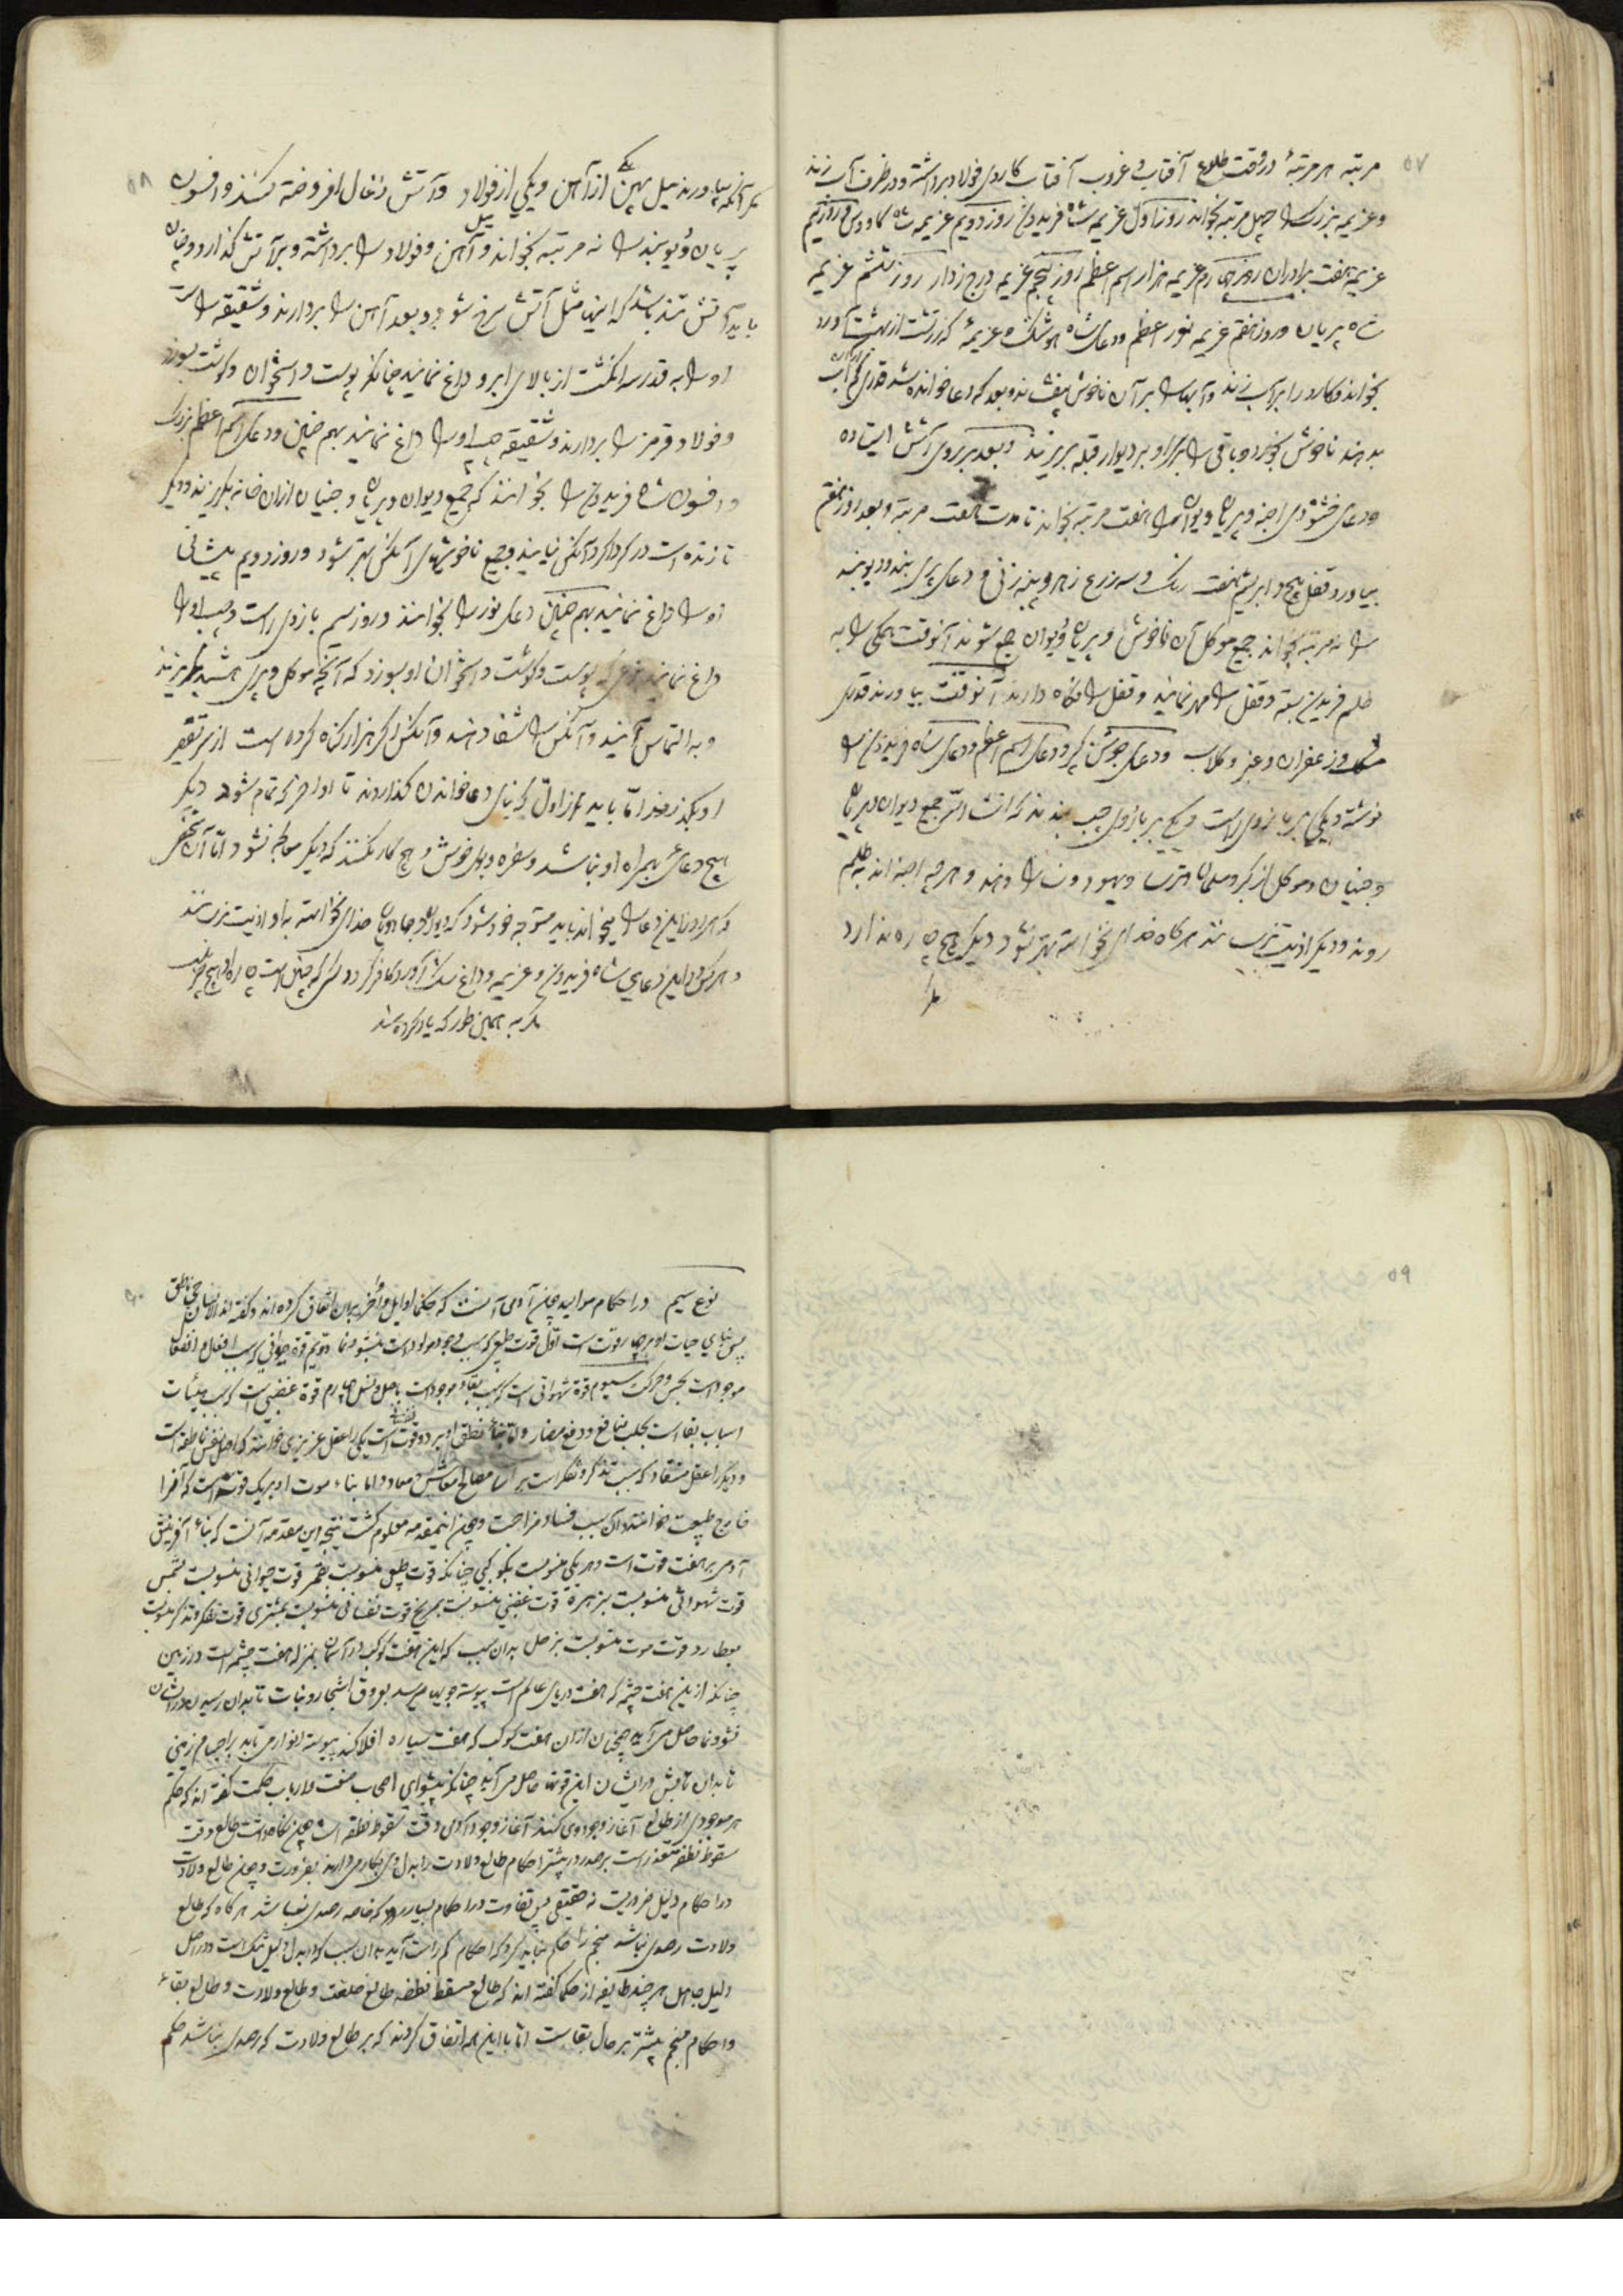 ۵۷
مرتبه هر مرتبهٔ در وقت طلوع آفتاب و غروب آفتاب کاردی فولاد برداشته و در ظرف آب زند
و عزیمه بزرک را چهل مرتبه بخواند روز اول عزیمه شاه فریدون روز دویم عزیمه شاه کاووس و روز سیم
عزیمه هفت برادران روز چهارم عزیمه هزار اسم اعظم روز پنجم عزیمه روز ششم عزیمه
شاه پریان و روز هفتم عزیمه نور اعظم و دعای شاه هوشنک و عزیمهٔ که زرتشت از بهشت آورد
بخواند و کارد را بر آب زند و آب را بر آن ناخوش و بعد که دعا خوانده شد قدری از آن آب
بدهند ناخوش بخورد و باقی را برابر او بر دیوار قبله بریزند و بعد بر روی آتش ایستاده
و دعای خشنودی اجنه و پریان و دیوان را هفت مرتبه بخواند تا مدت هفت مرتبه و بعد روز هفتم
بیاورد قفل و ابریشم هفت رنک و سه زرع و دعای پری بند و دیو بند
را نه مرتبه بخواند جمیع موکل آن ناخوش و پریان و دیوان جمع شوند آنوقت همکی را به
طلسم فریدون بسته و قفل را مهر نمایند و قفل را نکاه دارند آنوقت بیاورند قدری
مشک و زعفران و عنبر و کلاب و دعای جوشن کبیر و دعای اسم اعظم و دعای شاه فریدون را
نوشته و یکی بر بازوی راست و یکی بر بازوی چپ بندند که انشاءالله جمیع دیوان و پریان
و جنیان و موکل از کبر و مسلمان و ترسا و یهود و دهند و هر چه اجنه اند به طلسم
روند و دیکر اذیت نرسانند هر کاه خدای نخواسته بهتر نشود دیکر هیچ چاره ندارد
مکر
۵۸
مکر آنکه بیاورند میل پهن یکی از آهن و یکی از فولاد و آتش زغال افروخته کنند و افسون
پریان و دیو بند را نه مرتبه بخواند و میل آهن و فولاد را برداشته و بر آتش کذارد و چنان
باید آتش تند باشد که اینها مثل آتش سرخ شود و بعد آهن را بردارند و شقیقه راست
او را به قدر سه انکشت از بالای ابرو داغ نمایند چنانکه پوست و استخوان و کوشت بسوزد
و فولاد قرمز را بردارند و شقیقه چپ او را داغ نمایند بهم چنین و دعای اسم اعظم بزرک
و افسون شاه فریدون را بخوانند که جمیع دیوان و پریان و جنیان از آن خانه بکریزند و دیکر
تا زنده است در کرداکرد آنکس نیایند و جمیع ناخوشیهای آنکس بهتر شود و روز دویم پیشانی
او را داغ نمایند بهم چنین دعای نور را بخوانند و روز سیم بازوی راست و چپ او را
داغ نمایند که پوست و کوشت و استخوان او بسوزد که آنچه موکل و پری باشد بکریزند
و به التماس آیند و آنکس را شفا دهند و آنکس اکر هزار کناه کرده است از سر تقصیر
او بکذرند اما باید از اول که بنای دعا خواندن کذاردند تا او آخر که تمام شود دیکر
هیچ دعای همراه او نباشد و سفره و بوی خوش و هیچ کار نکنند که دیکر معالجه نشود و اما آن شخص
که هر روز این دعا را میخواند باید متوجه خود شود که دیوان و جادوان خدای نخواسته به او اذیت نرسانند
و هر کس در این دعای شاه فریدون و عزیمه و داغ شک آورد کافر کردد که چنین است چاره او هیچ چیز نیست
مکر به همین طور که یاد کرده شد
۵۹
۶۰
نوع سیم در احکام موالید چون آدمی آنست که حکما اوایل و اواخر بر آن اتفاق کرده اند و کفته اند الانسان حی ناطق
پس بنای حیات او بر چهار قوت است اول قوت طبیعی که سبب وجود مولود است بنشو و نما دویم قوة حیوانی که سبب افعال و انفعال
موجود است بحس و حرکت سیوم قوة شهوانی است که سبب بقاء موجود است باصل و نسل چهارم قوة غضبی است که سبب هیئات
اسباب بقا است بجلب منافع و دفع مضار و اما بناء نطقی او بر دو قوت نفسانی است یکی را عقل عزیزی خوانند که اصل نفس ناطقه است
و دیکر را عقل مستفاد که سبب تذکر و تفکر است بر مصالح معاش و معاد و اما بناء موت او بر یک قوت است که آنرا
خارج طبیعت خوانند و آن سبب فساد مزاجست و چون این مقدمه معلوم کشت نتیجه این مقدمه آنست که بناء آفرینش
آدمی بر هفت قوت است و هر یکی منسوبست بکوکبی چنانکه قوت طبیعی منسوبست بقمر قوت حیوانی منسوبست بشمس
قوت شهوانی منسوبست بزهره قوت غضبی منسوبست بمریخ قوت نفسانی منسوبست بمشتری قوت تفکر و تذکر منسوبست
بعطارد و قوت موت منسوبست بزحل بدان سبب که این هفت کوکب در آسمان بمنزله هفت چشمه است در زمین
چنانکه ازین هفت چشمه که هفت دریای عالم است پیوسته جویها میرسد بعروق اشجار و نبات تا بدان رسیدن در ایشان
نشو و نما حاصل می آید همچنان از آن هفت کوکب که هفت سیاره افلاکند پیوسته انوار می تابد بر اجسام زمینی
تا بدان تابش در ایشان این قوتها حاصل می آید چنانکه پیشوای اصحاب صنعت و ارباب حکمت کفته اند که حکم
هر موجودی از طالع آغاز وجود وی کنند آغاز وجود آدمی وقت سقوط نطفه است و چون نکاه داشت طالع وقت
سقوط نطفه متعذر است برصد در بیشتر احکام طالع ولادت را بدل وی بکار میدارند بضرورت و چون طالع ولادت
در احکام دلیل ضروریست نه حقیقی پس تفاوت در احکام بسیار بود که خاصه رصدی نباشد هر کاه که طالع
ولادت رصدی نباشد منجم را حکم نباید کرد که احکام کم راست آید بدان سبب که در بدل دلیل شک است و در اصل
دلیل جاهل هر چند طایفه از حکما کفته اند که طالع مسقط نطفه طالع خلقت و طالع ولادت و طالع بقاء
و احکام منجم بیشتر بر حال بقاست اما با این همه اتفاق کردند که بر طالع ولادت که رصدی نباشد حکم